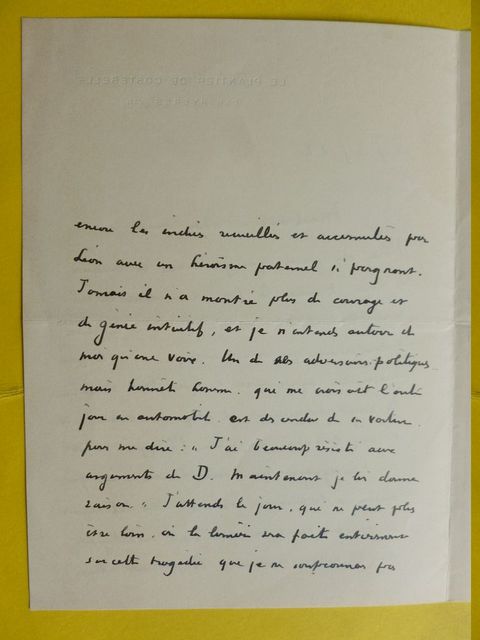 LE PLANTIER DE COSTEBELLE
PAR HYÈRES
encore les indices recueillis et accumulés par
Léon avec un héroïsme paternel si poignant.
Jamais il n'a montré plus de courage et
de génie intuitif, et je n'entends autour de
moi qu'une voix. Un de ses adversaires politiques
mais honnête homme, qui me croisait l'autre
jour en automobile est descendu de sa voiture
pour me dire : "J'ai beaucoup résisté aux
arguments de D. Maintenant je lui donne
raison." J'attends le jour, qui ne peut plus
être loin, où la lumière sera faite entièrement
sur cette tragédie que je ne soupçonnais pas